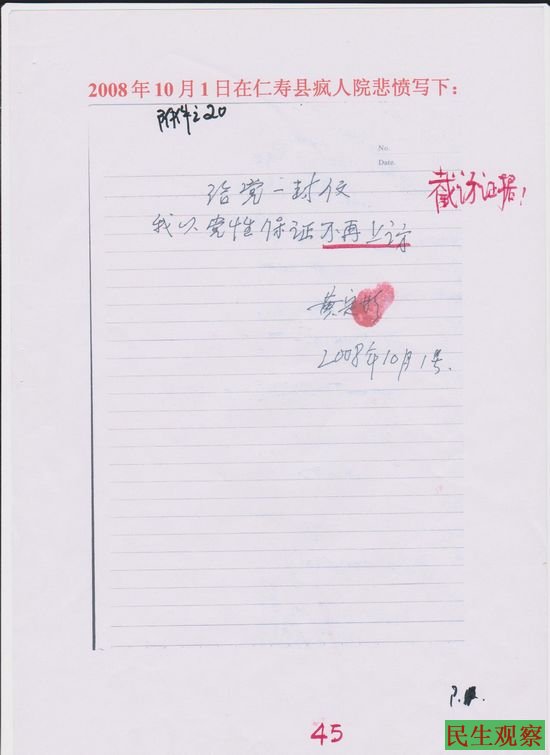 2008年10月1日在仁寿县疯人院悲愤写下:
附件之20
No.
Date.
截访证据!
给党一封信
我以党性保证不再上访
黄
2008年10月1号.
45
民生观察